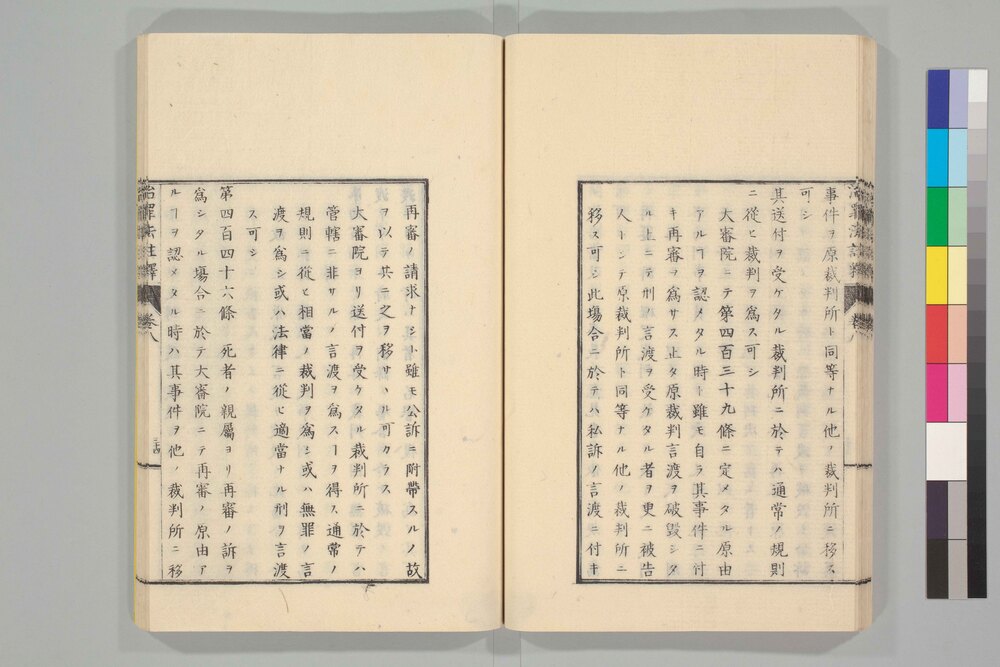 事件ヲ原裁判所ト同等ナル他ノ裁判所ニ移ス
可シ
其送付ヲ受ケタル裁判所ニ於テハ通常ノ規則
ニ從ヒ裁判ヲ爲ス可シ
大審院ニテ第四百三十九條ニ定メタル原由
アルヿヲ認メタル時ト雖モ自ラ其事件ニ付
キ再審ヲ爲サス止タ原裁判言渡ヲ破毀シタ
ル上ニテ刑ノ言渡ヲ受ケタル者ヲ更ニ被告
人トシテ原裁判所ト同等ナル他ノ裁判所ニ
移ス可シ此塲合ニ於テハ私訴ノ言渡ニ付キ
再審ノ請求ナシト雖モ公訴ニ附帶スルノ故
ヲ以テ共ニ之ヲ移サヽル可カラス
大審院ヨリ送付ヲ受ケタル裁判所ニ於テハ
管轄ニ非サルノ言渡ヲ爲スヿヲ得ス通常ノ
規則ニ從ヒ相當ノ裁判ヲ爲シ或ハ無罪ノ言
渡ヲ爲シ或ハ法律ニ從ヒ適當ナル刑ヲ言渡
ス可シ
第四百四十六條 死者ノ親屬ヨリ再審ノ訴ヲ
爲シタル塲合ニ於テ大審院ニテ再審ノ原由ア
ルヿヲ認メタル時ハ其事件ヲ他ノ裁判所ニ移
治罪法註釋 卷八